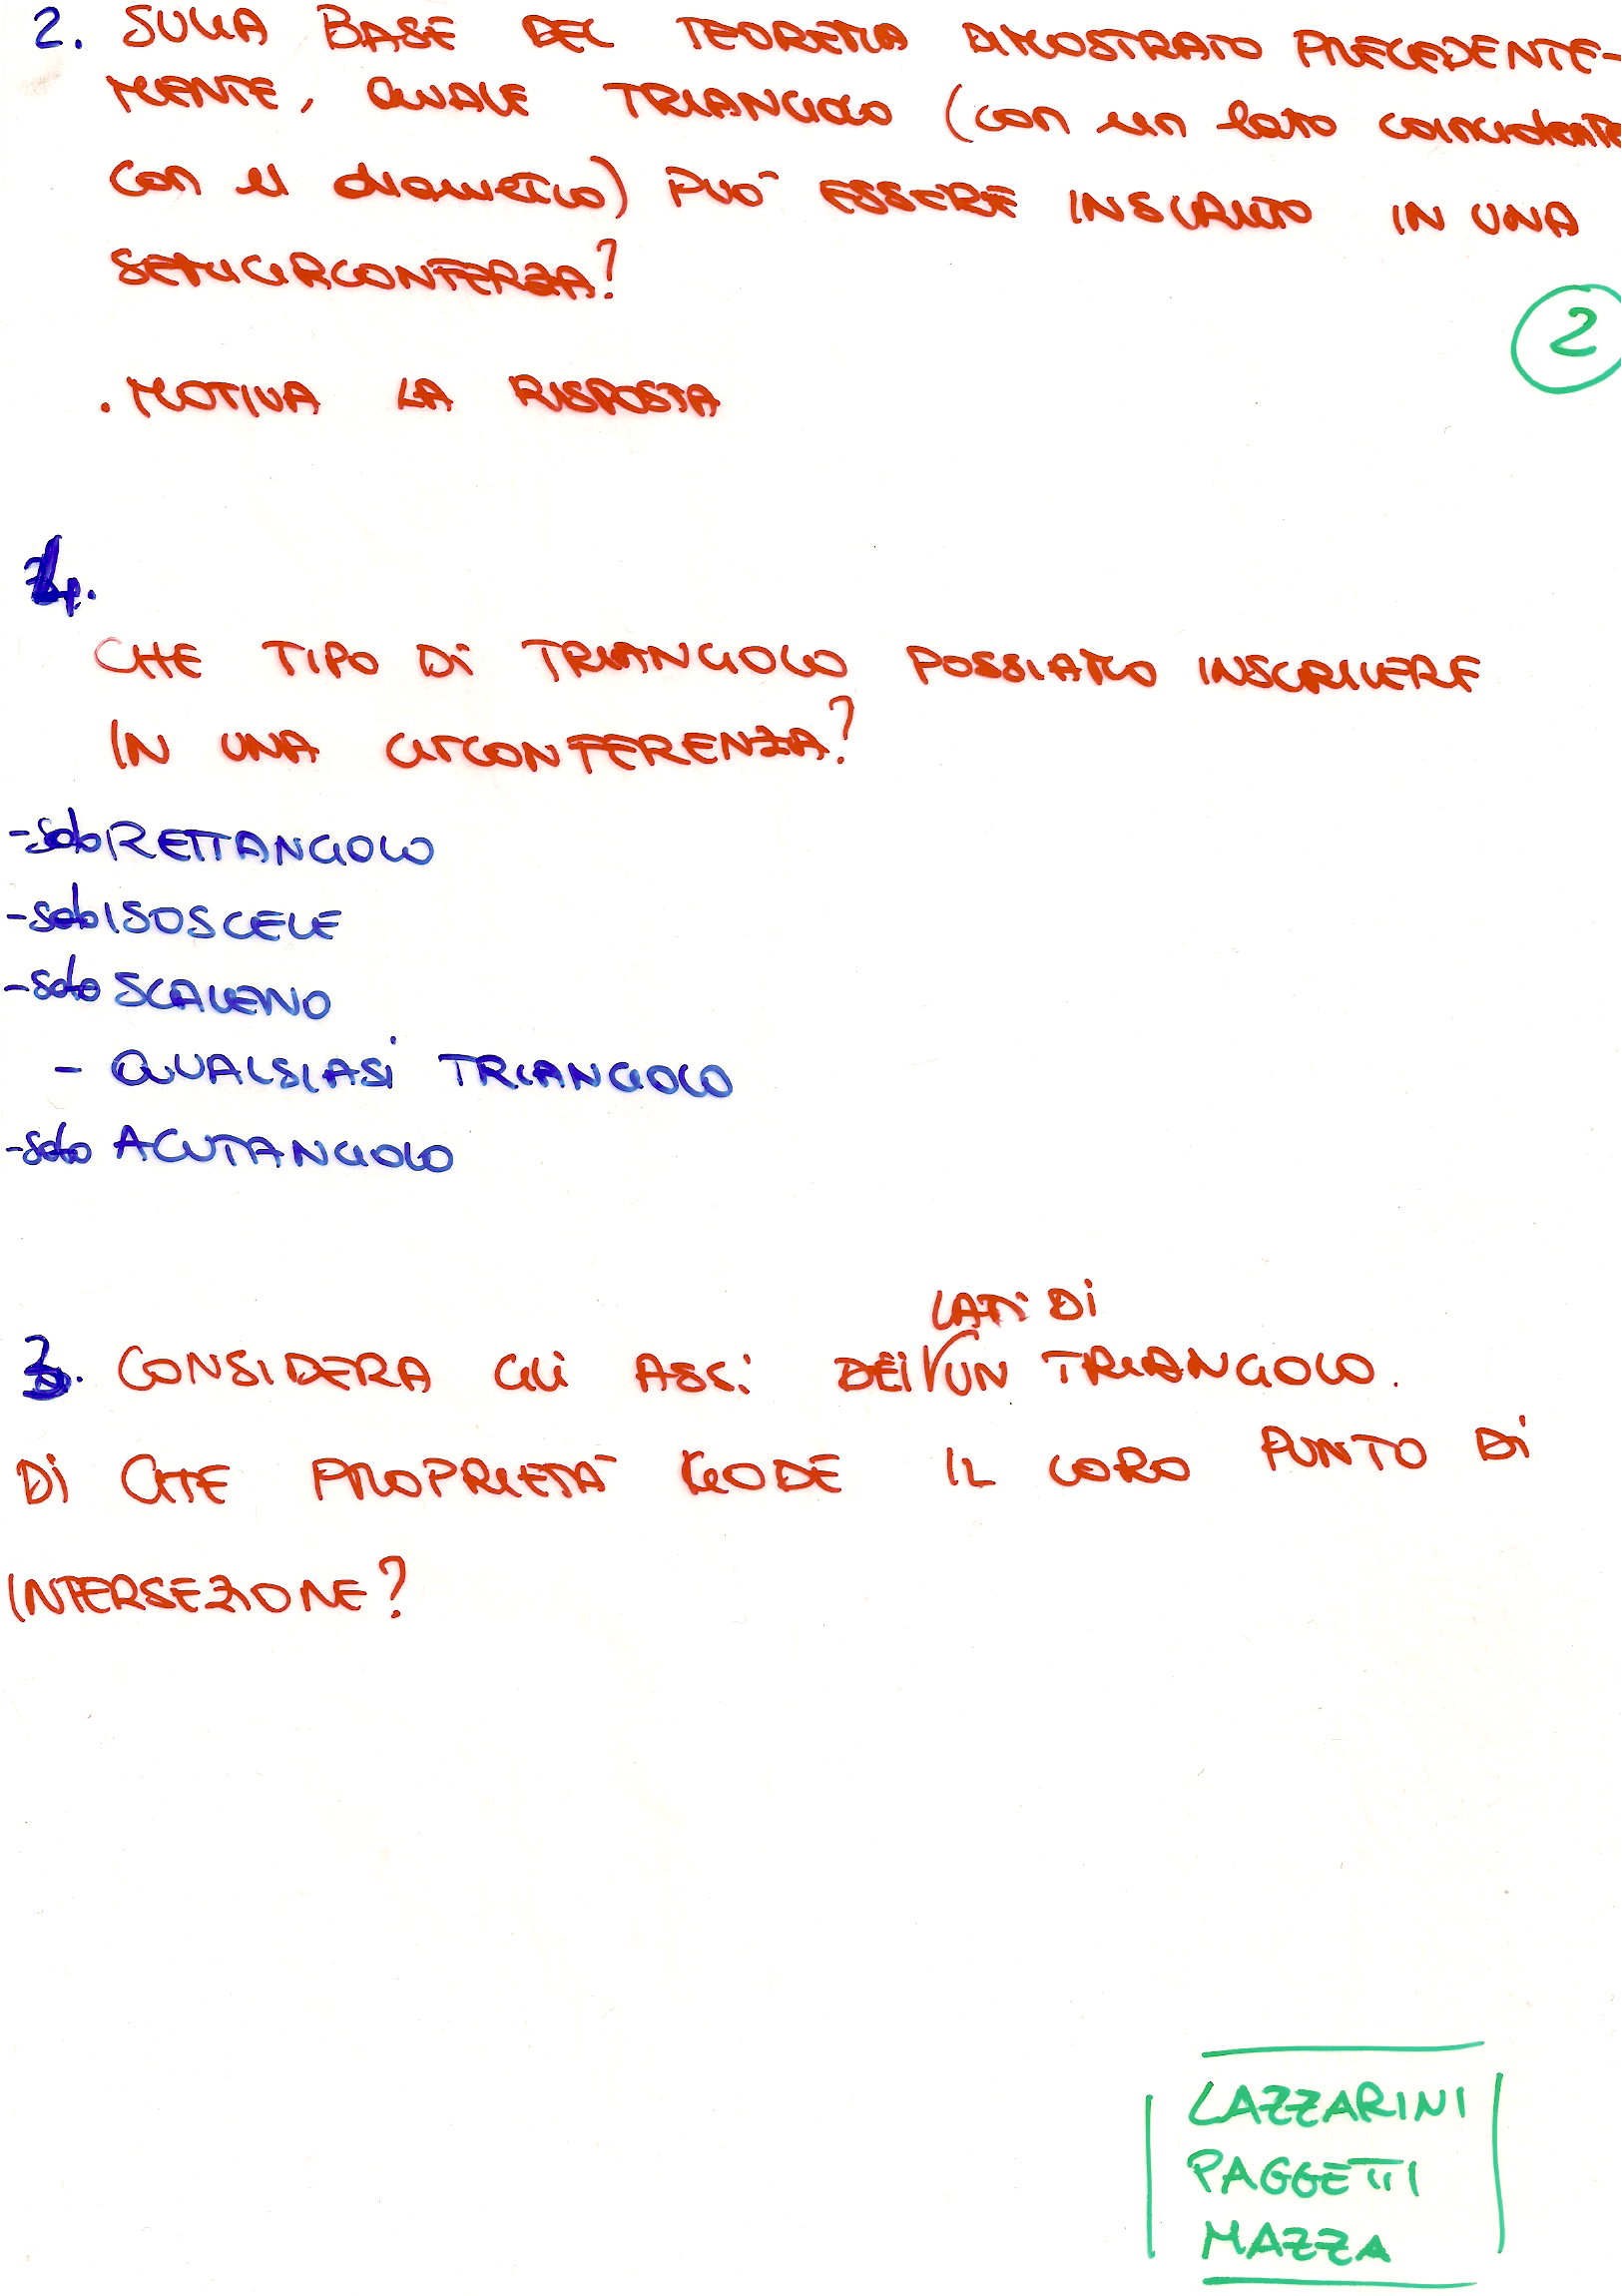 2. SULLA BASE DEL TEOREMA DIMOSTRATO PRECEDENTE-
MENTE, QUALE TRIANGOLO (con un lato coincidente
con il diametro) PUO' ESSERE INSCRITTO IN UNA
SEMICIRCONFERZA?
2
. MOTIVA LA RISPOSTA
4.
CHE TIPO DI TRIANGOLO POSSIAMO INSCRIVERE
IN UNA CIRCONFERENZA?
- solo RETTANGOLO
- solo ISOSCELE
- solo SCALENO
- QUALSIASI TRIANGOLO
- solo ACUTANGOLO
LATI DI
3. CONSIDERA GLI ASSI DEI UN TRIANGOLO.
DI CHE PROPRIETA' GODE IL LORO PUNTO DI
INTERSEZIONE?
LAZZARINI
PAGGETTI
MAZZA